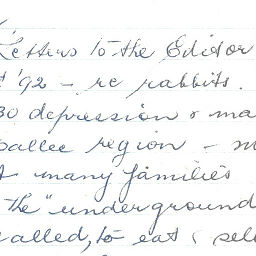 Letters to the Editor
'92 - re rabbits.
30 depression & ma
allee region - m
many families
the "underground
alled, to eat & sell